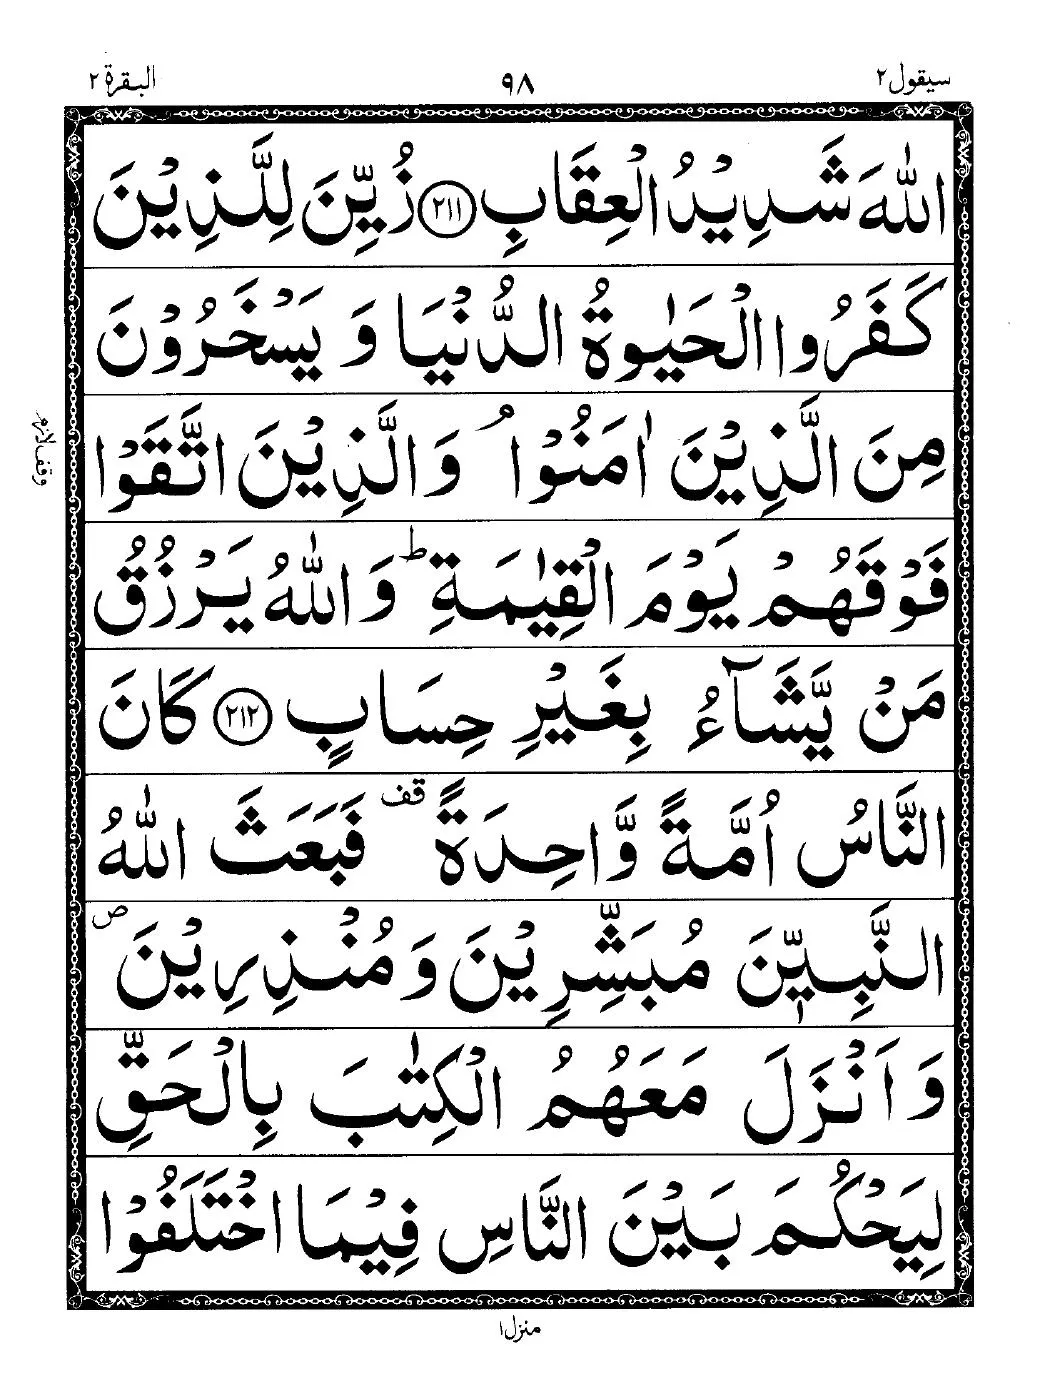 سيقول ٢
٩٨
البقرة ٢
اللّٰهَ شَدِيْدُ الْعِقَابِ ﴿٢١١﴾ زُيِّنَ لِلَّذِيْنَ
كَفَرُوا الْحَيٰوةُ الدُّنْيَا وَ يَسْخَرُوْنَ
مِنَ الَّذِيْنَ اٰمَنُوْا ۘ وَالَّذِيْنَ اتَّقَوْا
وقف لازم
فَوْقَهُمْ يَوْمَ الْقِيٰمَةِ ؕ وَاللّٰهُ يَرْزُقُ
مَنْ يَّشَآءُ بِغَيْرِ حِسَابٍ ﴿٢١٢﴾ كَانَ
النَّاسُ اُمَّةً وَّاحِدَةً قف فَبَعَثَ اللّٰهُ
النَّبِيّٖنَ مُبَشِّرِيْنَ وَ مُنْذِرِيْنَ ص
وَ اَنْزَلَ مَعَهُمُ الْكِتٰبَ بِالْحَقِّ
لِيَحْكُمَ بَيْنَ النَّاسِ فِيْمَا اخْتَلَفُوْا
منزل ١